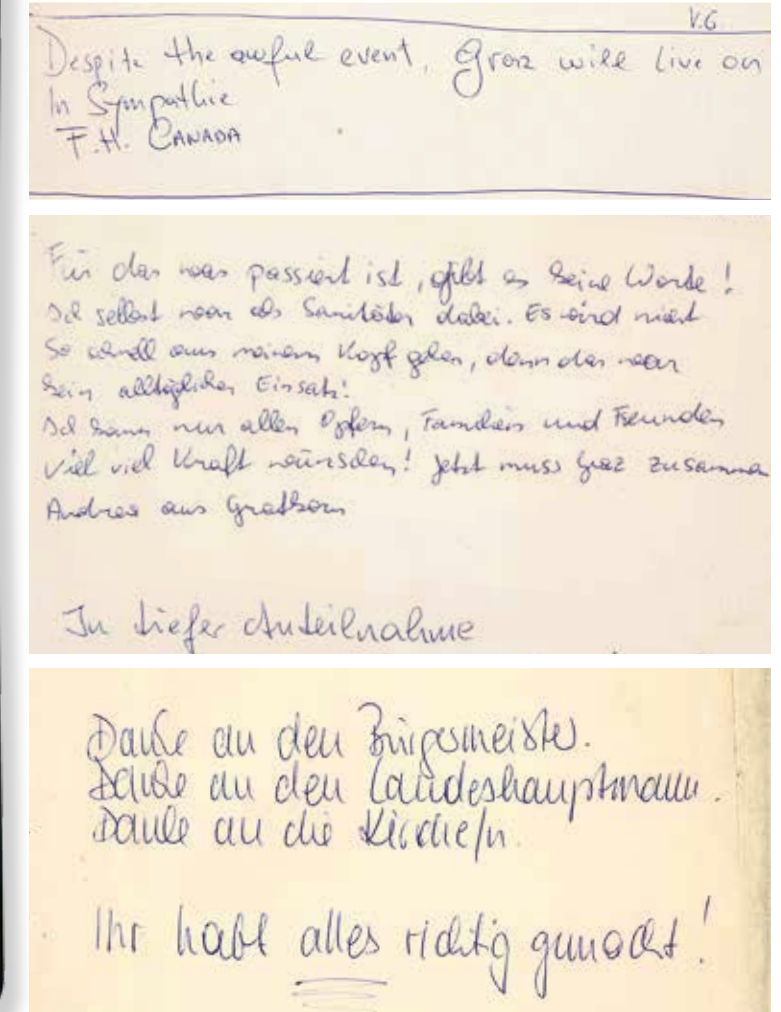 V.G.
Despite the awful event, Graz will live on
In Sympathie
F.H. CANADA
Für das was passiert ist, gibt es keine Worte!
Ich selbst war als Sanitäter dabei. Es wird nicht
so schnell aus meinem Kopf gehen, denn das war
kein alltäglicher Einsatz!
Ich kann nur allen Opfern, Familien und Freunden
viel viel Kraft wünschen! Jetzt muss Graz zusamme
Andrea aus Gratkorn
In tiefer Anteilnahme
Danke an den Bürgermeister.
Danke an den Landeshauptmann.
Danke an die Kirche/n.
Ihr habt alles richtig gemacht!